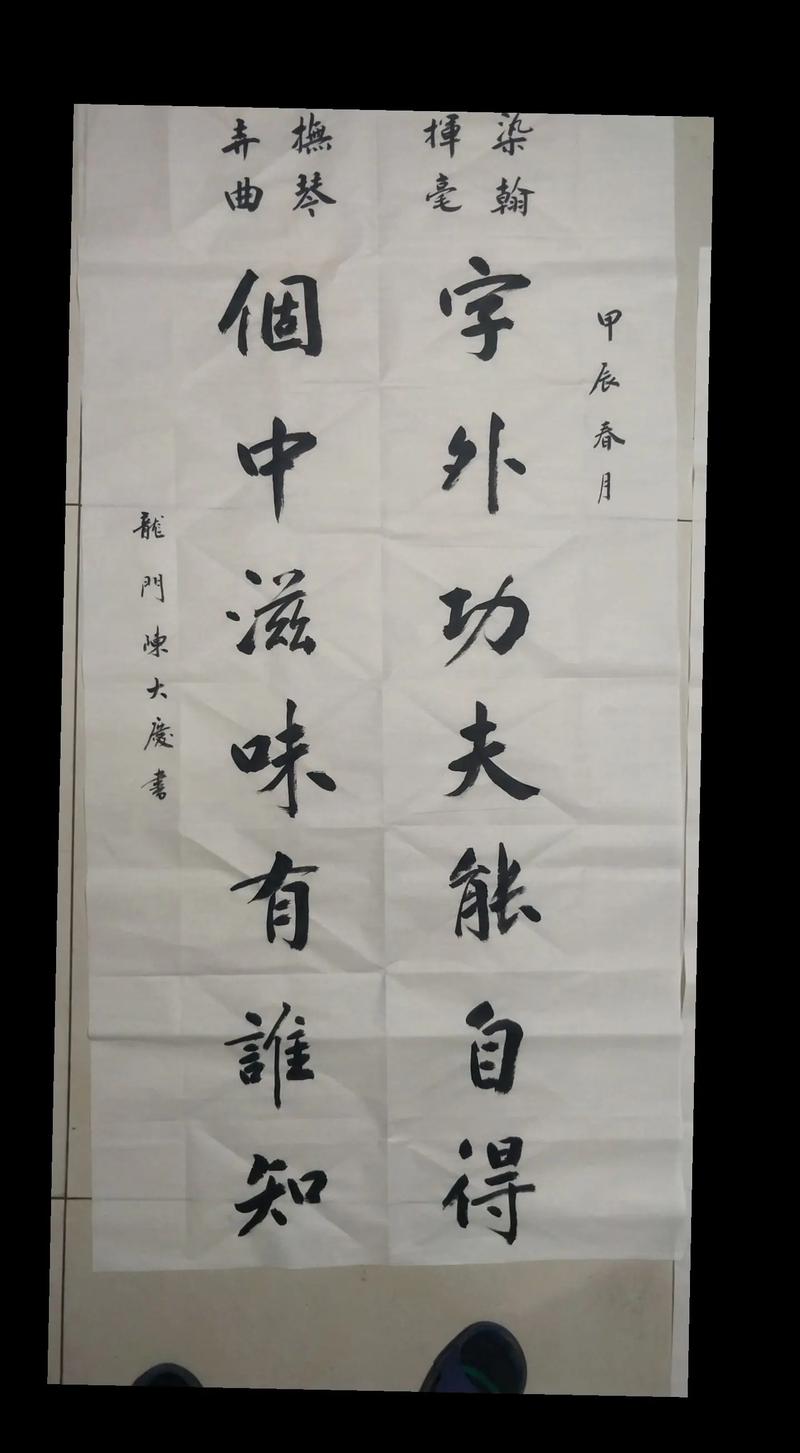 甲辰春月
染翰
揮毫
字外功夫能自得
撫琴
弄曲
個中滋味有誰知
龍門陳大慶書